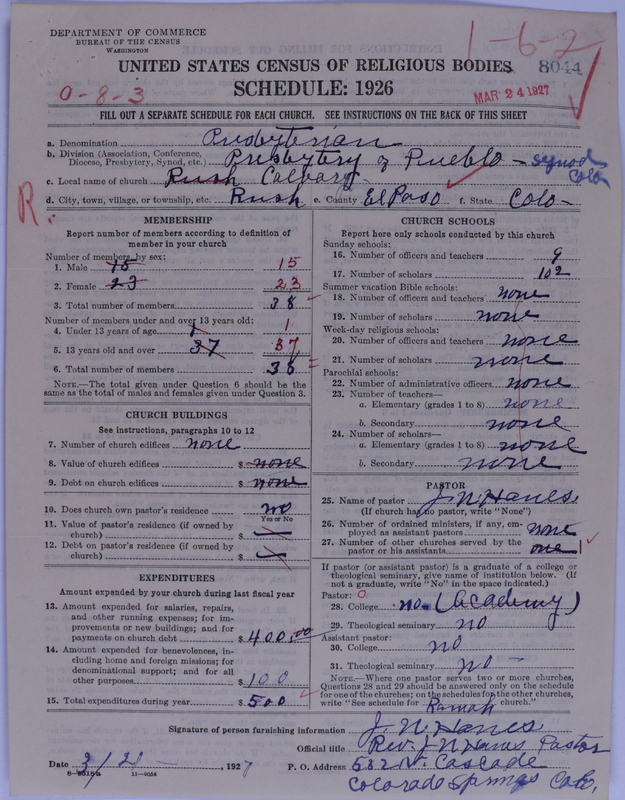 DEPARTMENT OF COMMERCE
BUREAU OF THE CENSUS
WASHINGTON
1-6-2
8044
UNITED STATES CENSUS OF RELIGIOUS BODIES
SCHEDULE: 1926
0-8-3
MAR 24 1927
FILL OUT A SEPARATE SCHEDULE FOR EACH CHURCH. SEE INSTRUCTIONS ON THE BACK OF THIS SHEET
a. Denomination Presbyterian
b. Division (Association, Conference, Diocese, Presbytery, Synod, etc.) Presbytery of Pueblo - Synod Colo
c. Local name of church Rush Calvary
d. City, town, village, or township, etc. Rush e. County El Paso f. State Colo-
R.
MEMBERSHIP
Report number of members according to definition of
member in your church
Number of members by sex:
1. Male 15 15
2. Female 23 23
3. Total number of members 38
Number of members under and over 13 years old:
4. Under 13 years of age 1 1
5. 13 years old and over 37 37
6. Total number of members 38
NOTE.—The total given under Question 6 should be the
same as the total of males and females given under Question 3.
CHURCH BUILDINGS
See instructions, paragraphs 10 to 12
7. Number of church edifices none
8. Value of church edifices $ none
9. Debt on church edifices $ none
10. Does church own pastor's residence no
Yes or No
11. Value of pastor's residence (if owned by
church) $
12. Debt on pastor's residence (if owned by
church) $
EXPENDITURES
Amount expended by your church during last fiscal year
13. Amount expended for salaries, repairs,
and other running expenses; for im-
provements or new buildings; and for
payments on church debt $ 400.00
14. Amount expended for benevolences, in-
cluding home and foreign missions; for
denominational support; and for all
other purposes $ 100
15. Total expenditures during year $ 500
CHURCH SCHOOLS
Report here only schools conducted by this church
Sunday schools:
16. Number of officers and teachers 9
17. Number of scholars 102
Summer vacation Bible schools:
18. Number of officers and teachers none
19. Number of scholars none
Week-day religious schools:
20. Number of officers and teachers none
21. Number of scholars none
Parochial schools:
22. Number of administrative officers none
23. Number of teachers—
a. Elementary (grades 1 to 8) none
b. Secondary none
24. Number of scholars—
a. Elementary (grades 1 to 8) none
b. Secondary none
PASTOR
25. Name of pastor J. N. Hanes
(If church has no pastor, write "None")
26. Number of ordained ministers, if any, em-
ployed as assistant pastors none
27. Number of other churches served by the
pastor or his assistants one 1
If pastor (or assistant pastor) is a graduate of a college or
theological seminary, give name of institution below. (If
not a graduate, write "No" in the space indicated.)
Pastor: 0
28. College no- (Academy)
29. Theological seminary no
Assistant pastor:
30. College no
31. Theological seminary no -
NOTE.—Where one pastor serves two or more churches,
Questions 28 and 29 should be answered only on the schedule
for one of the churches; on the schedules for the other churches,
write "See schedule for Ramah church."
Signature of person furnishing information J. N. Hanes
Official title Rev. J N Hanes Pastor
Date 3/21-, 1927 P. O. Address 532 N. Cascade
Colorado Springs Colo.
8-5518a 11-9054